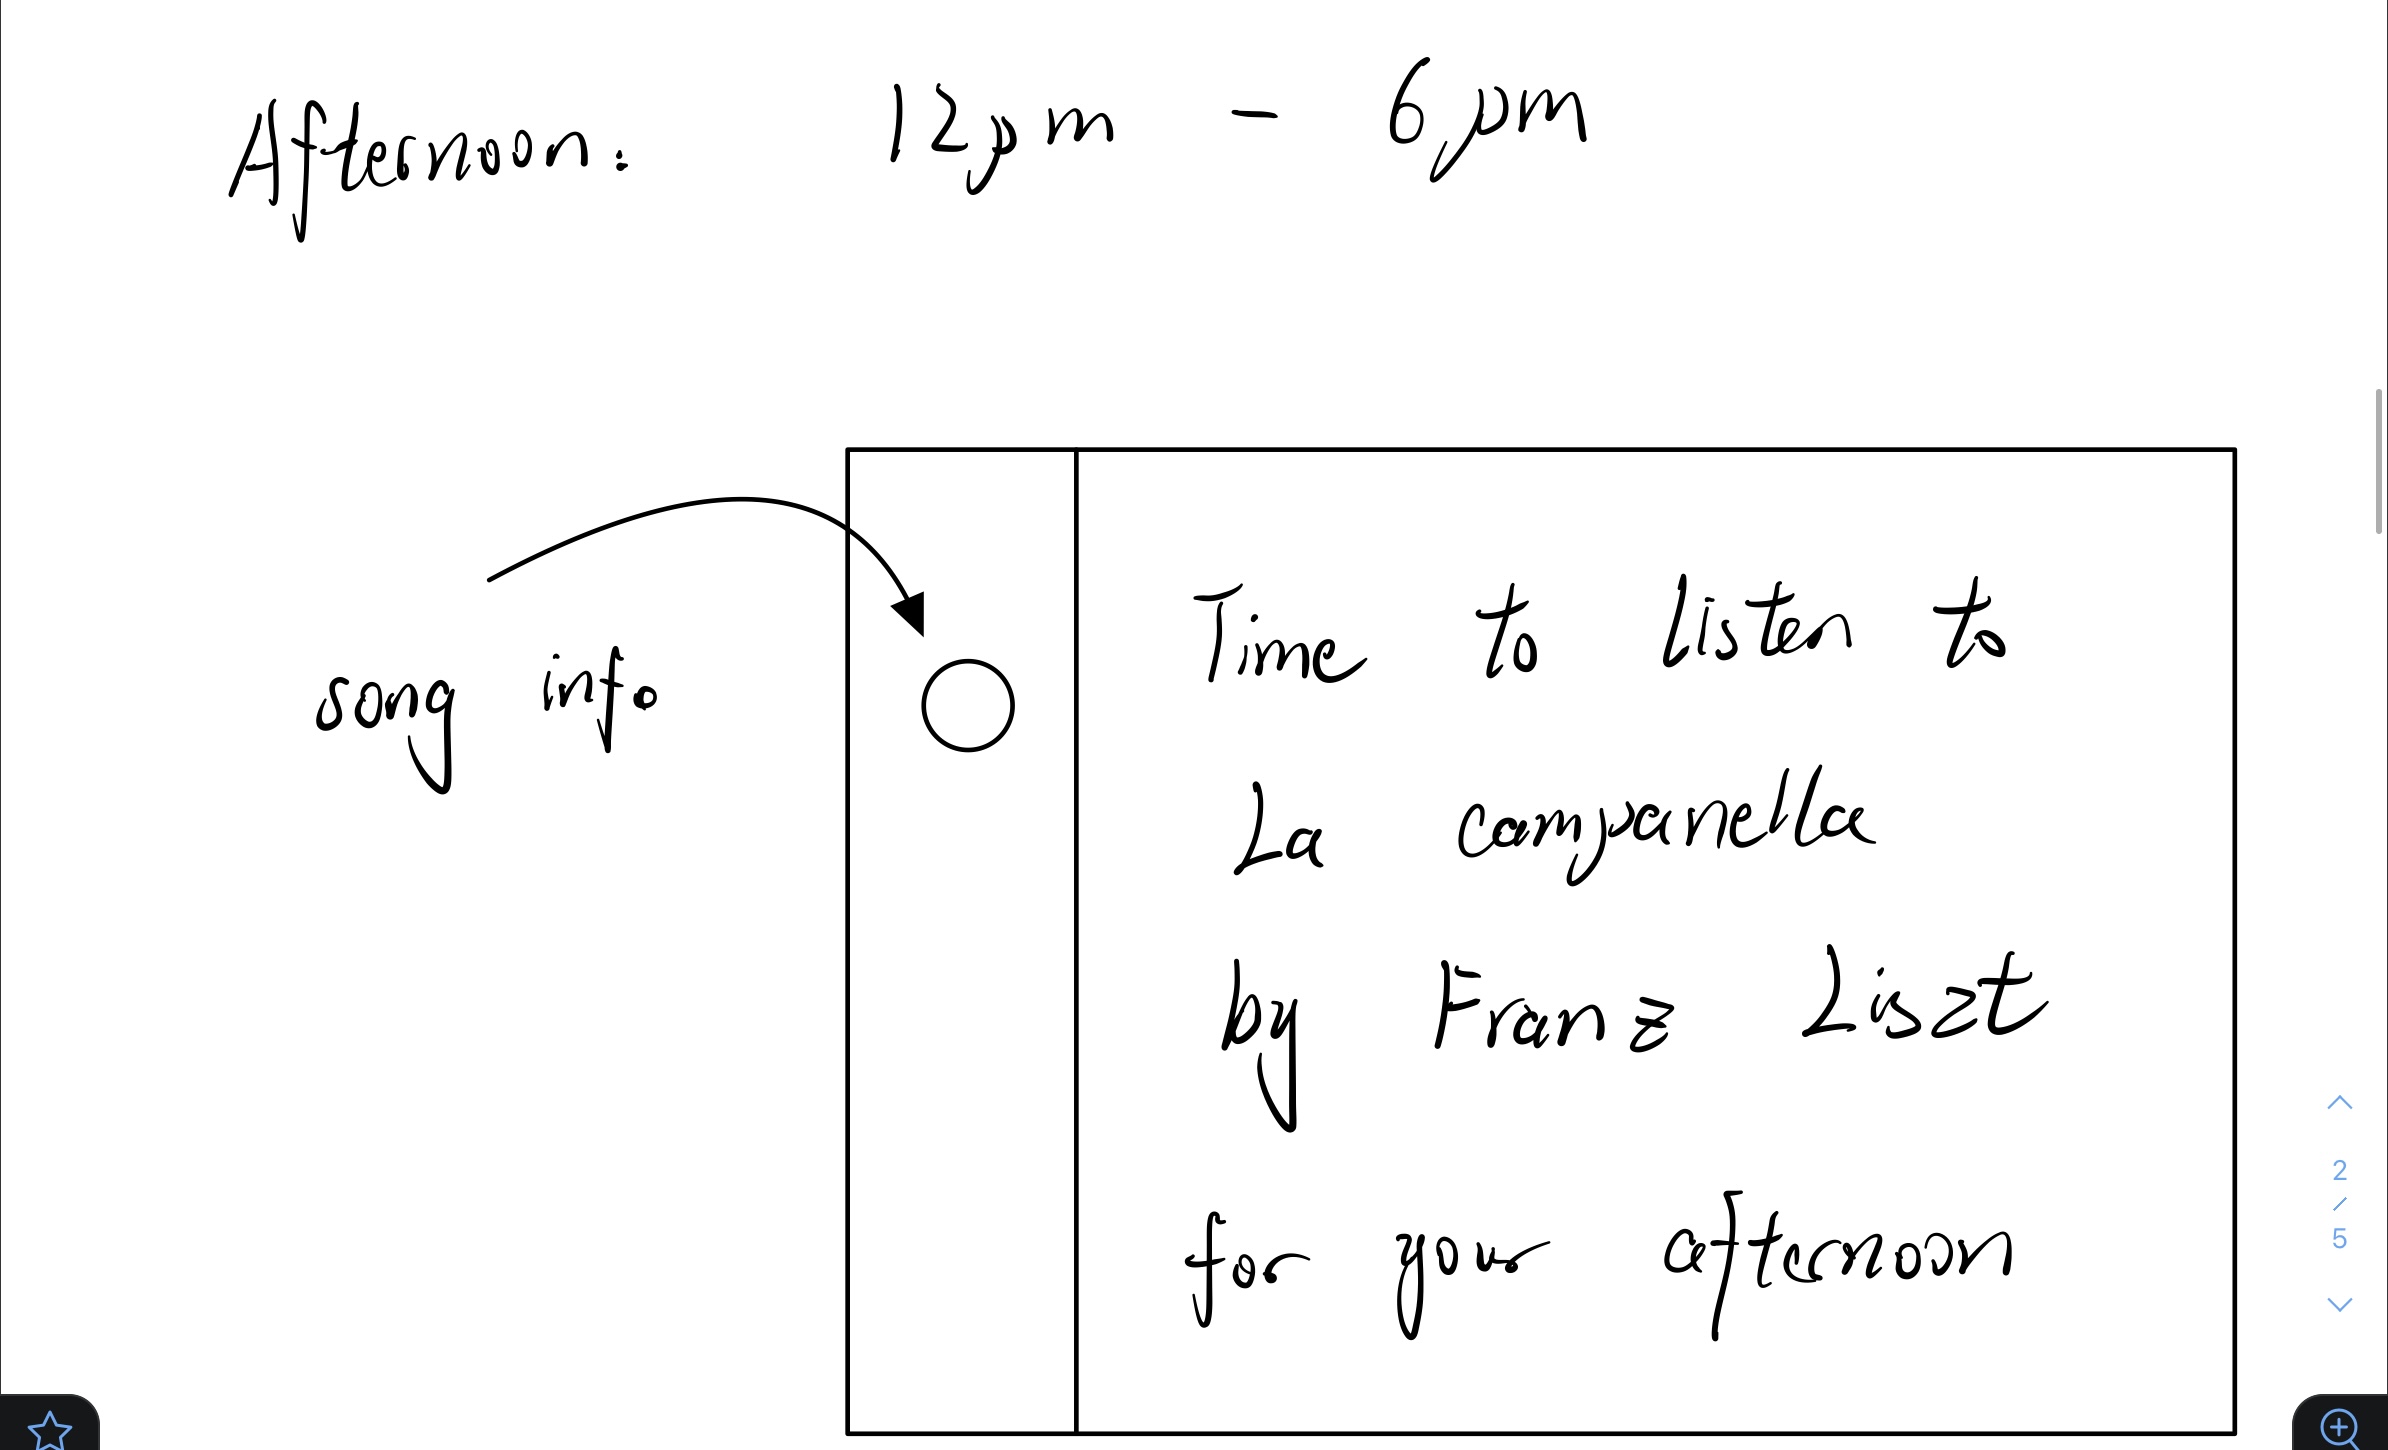 Afternoon: 12pm - 6pm
song info
Time to listen to
La campanella
by Franz Liszt
for your afternoon
2
/
5